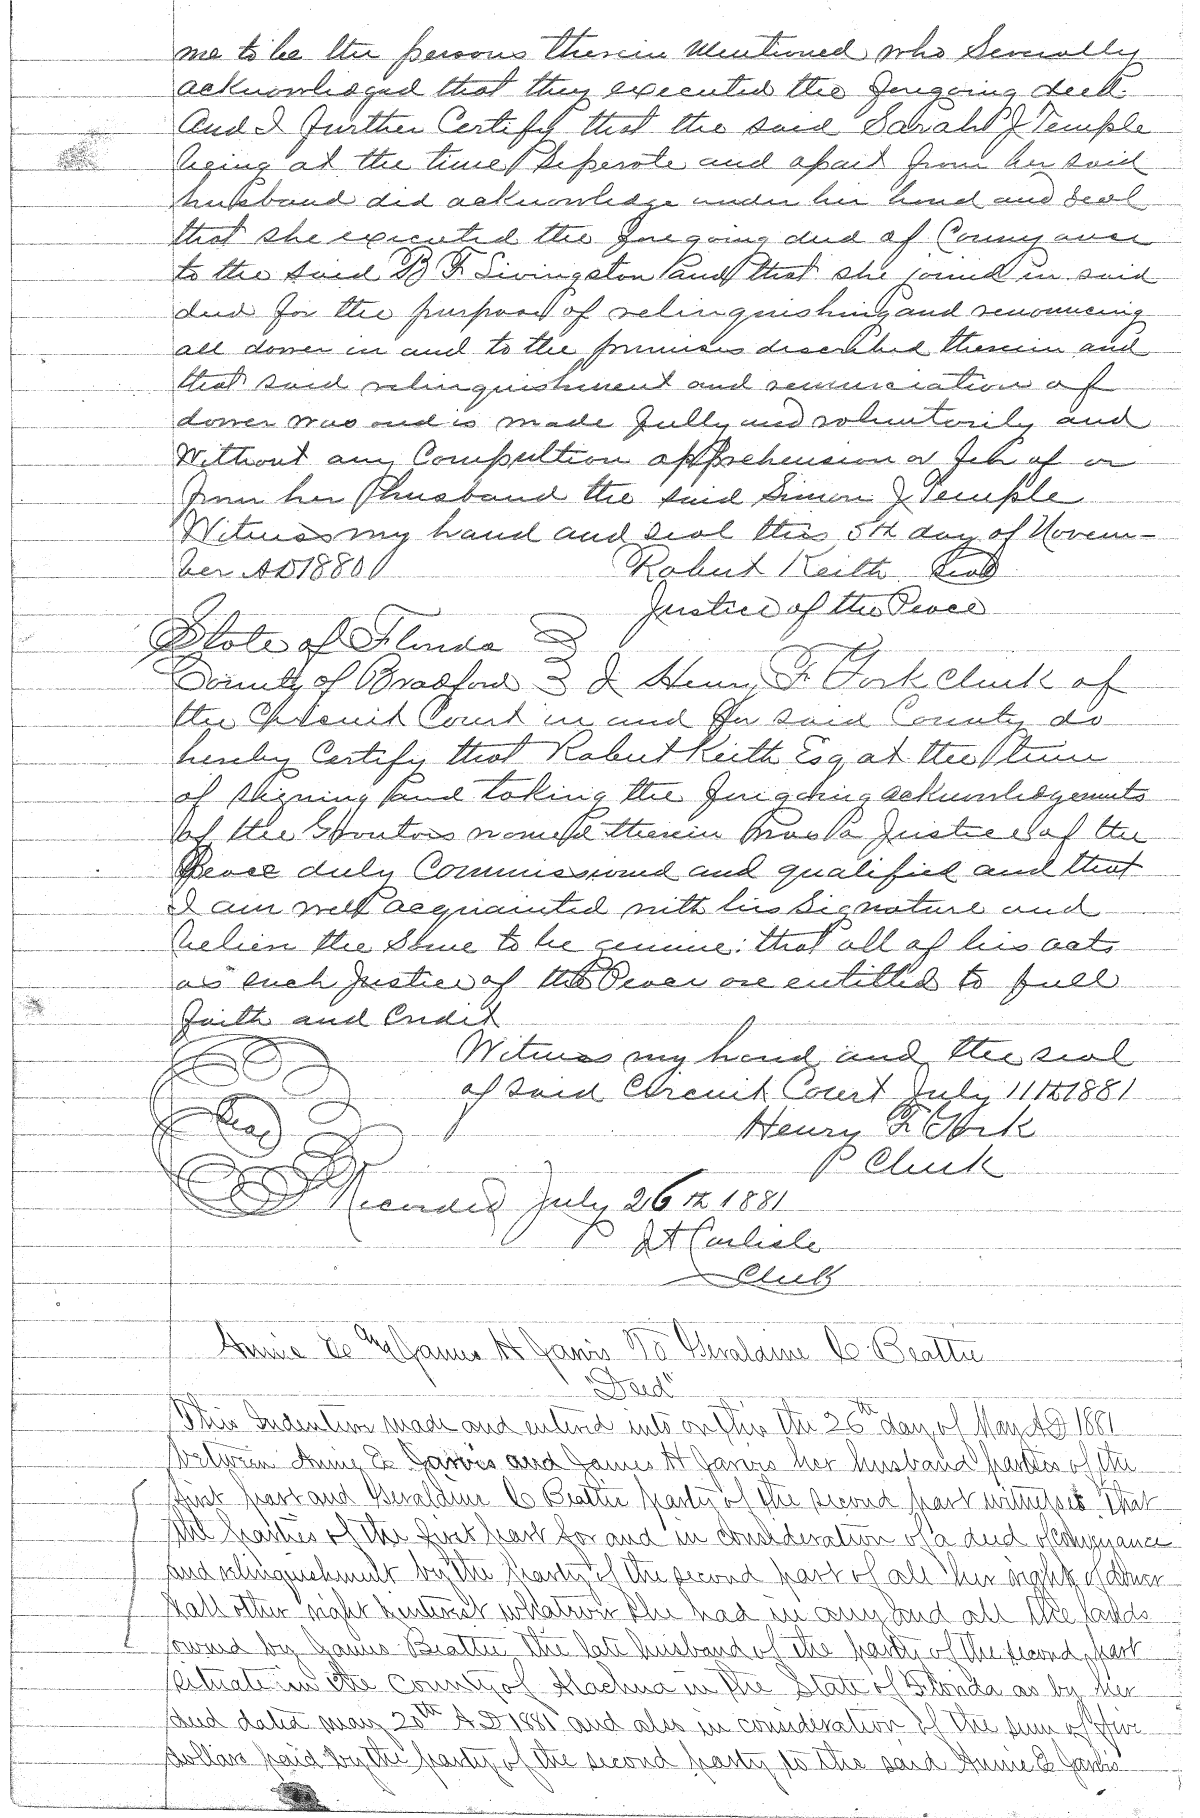 me to be the persons therein Mentioned who Severally
acknowledged that they executed the foregoing deed.
And I further Certify that the said Sarah J Temple
being at the time seperate and apart from her said
husband did acknowledge under her hand and seal
that she executed the foregoing deed of Conveyance
to the said B F Livingston and that she joined in said
deed for the purpose of relinquishing and renouncing
all dower in and to the premises described therein and
that said relinquishment and renunciation of
dower was and is made fully and voluntarily and
Without any Compultion apprehension or fear of or
from her husband the said Simon J Temple
Witness my hand and seal this 5th day of Novem-
ber AD 1880 Robert Keith Seal
Justice of the Peace
State of Florida
County of Bradford I Henry F York Clerk of
the Circuit Court in and for said County do
hereby Certify that Robert Keith Esq at the time
of signing and taking the foregoing acknowledgements
of the Grantors named therein was a Justice of the
Peace duly Commissioned and qualified and that
I am well acquainted with his Signature and
believe the Same to be genuine: that all of his acts
as such Justice of the Peace are entitled to full
faith and Credit
Witness my hand and the seal
of said Circuit Court July 11th 1881
Seal
Henry F York
Clerk
Recorded July 26th 1881
J A Carlisle
Clerk
Annie E and James H Jarvis To Geraldine C Beattie
"Deed"
This Indenture made and entered into on this the 26th day of May AD 1881
between Annie E Jarvis and James H Jarvis her husband parties of the
first part and Geraldine C Beattie party of the second part witnesses That
the parties of the first part for and in consideration of a deed of conveyance
and relinquishment by the party of the second part of all her right of dower
& all other right & interest whatever she had in any and all the lands
owned by James Beattie the late husband of the party of the second part
situate in the County of Alachua in the State of Florida as by her
deed dated May 20th AD 1881 and also in consideration of the sum of five
dollars paid by the party of the second party to the said Annie E Jarvis